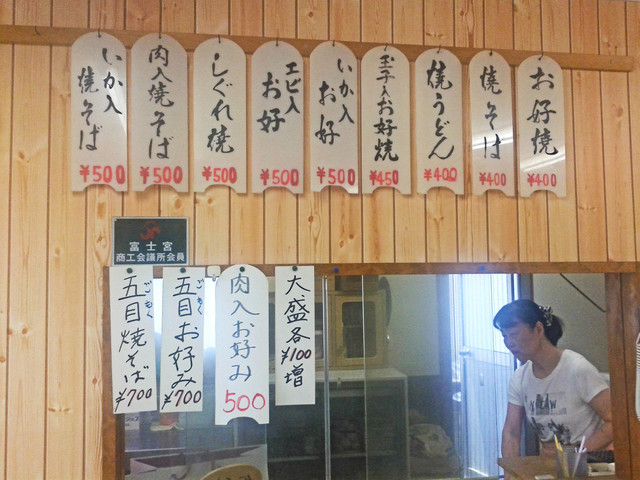 お好焼
¥400
焼そば
¥400
焼うどん
¥400
玉子入お好焼
¥450
いか入
お好
¥500
エビ入
お好
¥500
しぐれ焼
¥500
肉入焼そば
¥500
いか入
焼そば
¥500
富士宮
商工会議所会員
大盛各
¥100
増
肉入お好み
500
ごもく
五目お好み
¥700
ごもく
五目焼そば
¥700